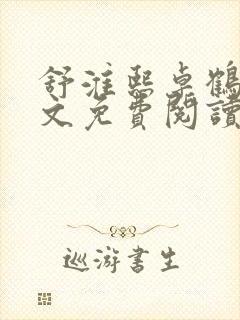 舒淮熙卓鶴
文免費閱讀
巡游書生